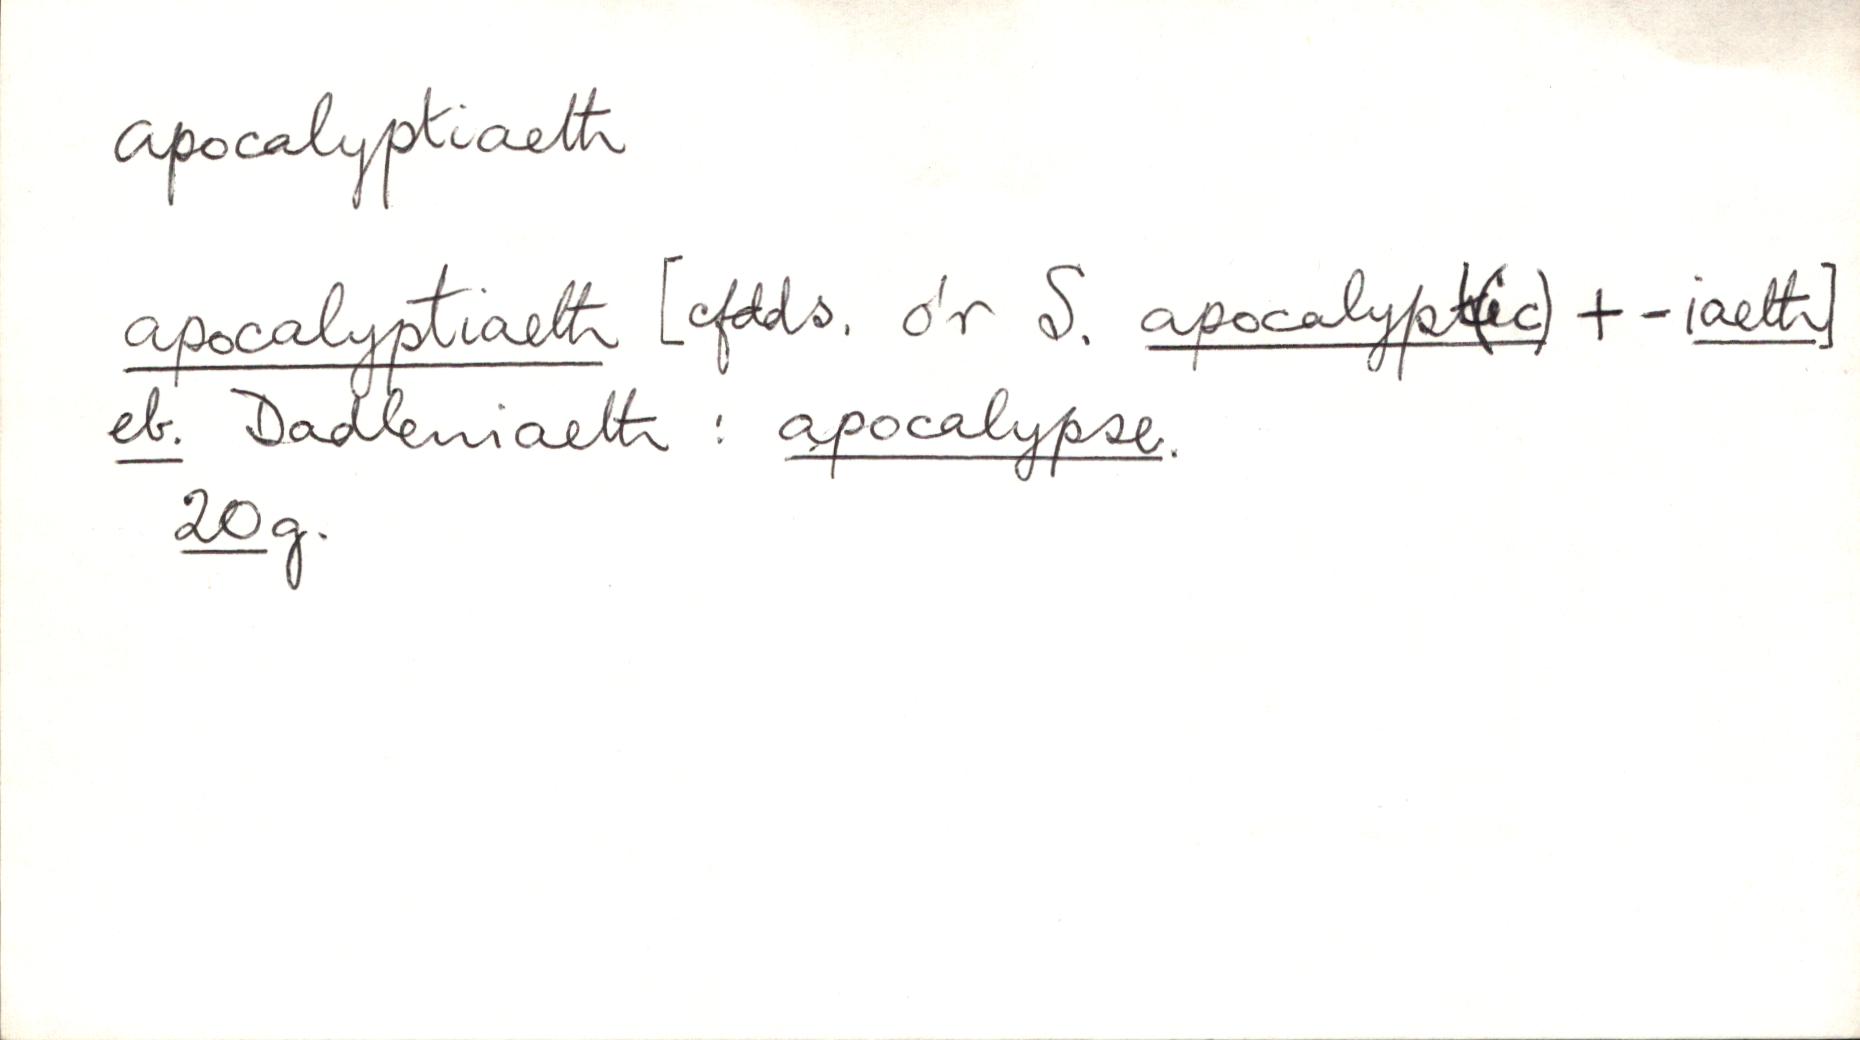 apocalyptiaeth
apocalyptiaeth [cfdds. o'r S. apocalypt(ic) + -iaeth]
eb. Dadleniaeth : apocalypse.
20g.